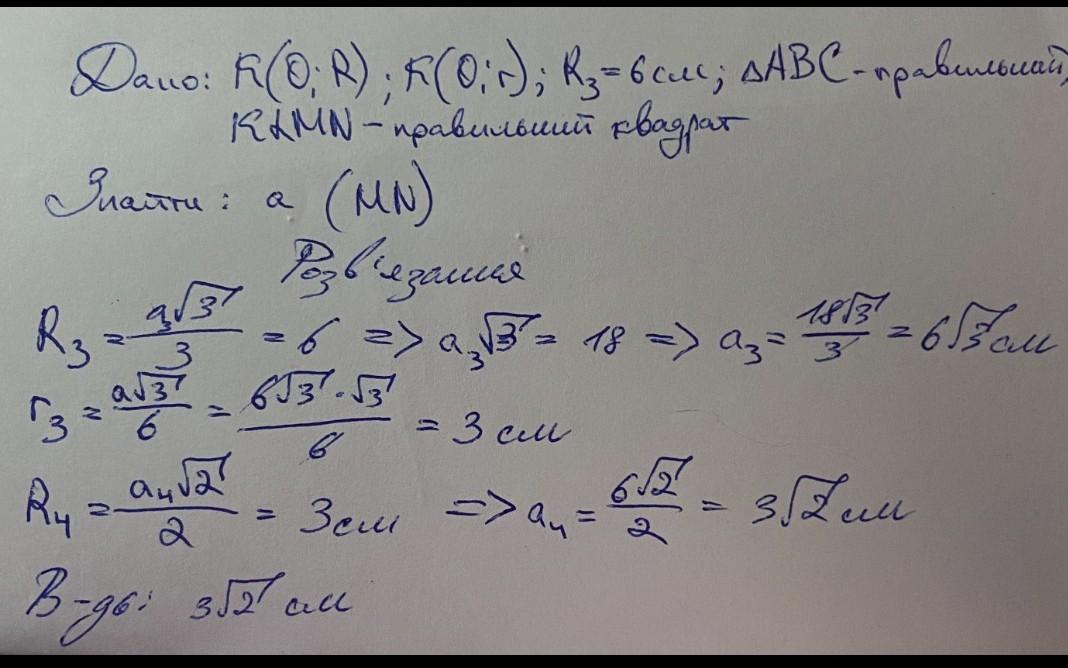 Дано: К(О; R); К(О; r); R₃ = 6 см; △ABC - правильний,
KLMN - правильний квадрат
Знайти: a (MN)
Розв'язання
R₃ = a₃√3/3 = 6 => a₃√3 = 18 => a₃ = 18√3/3 = 6√3 см
r₃ = a√3/6 = 6√3·√3/6 = 3 см
R₄ = a₄√2/2 = 3 см => a₄ = 6√2/2 = 3√2 см
В-дь: 3√2 см